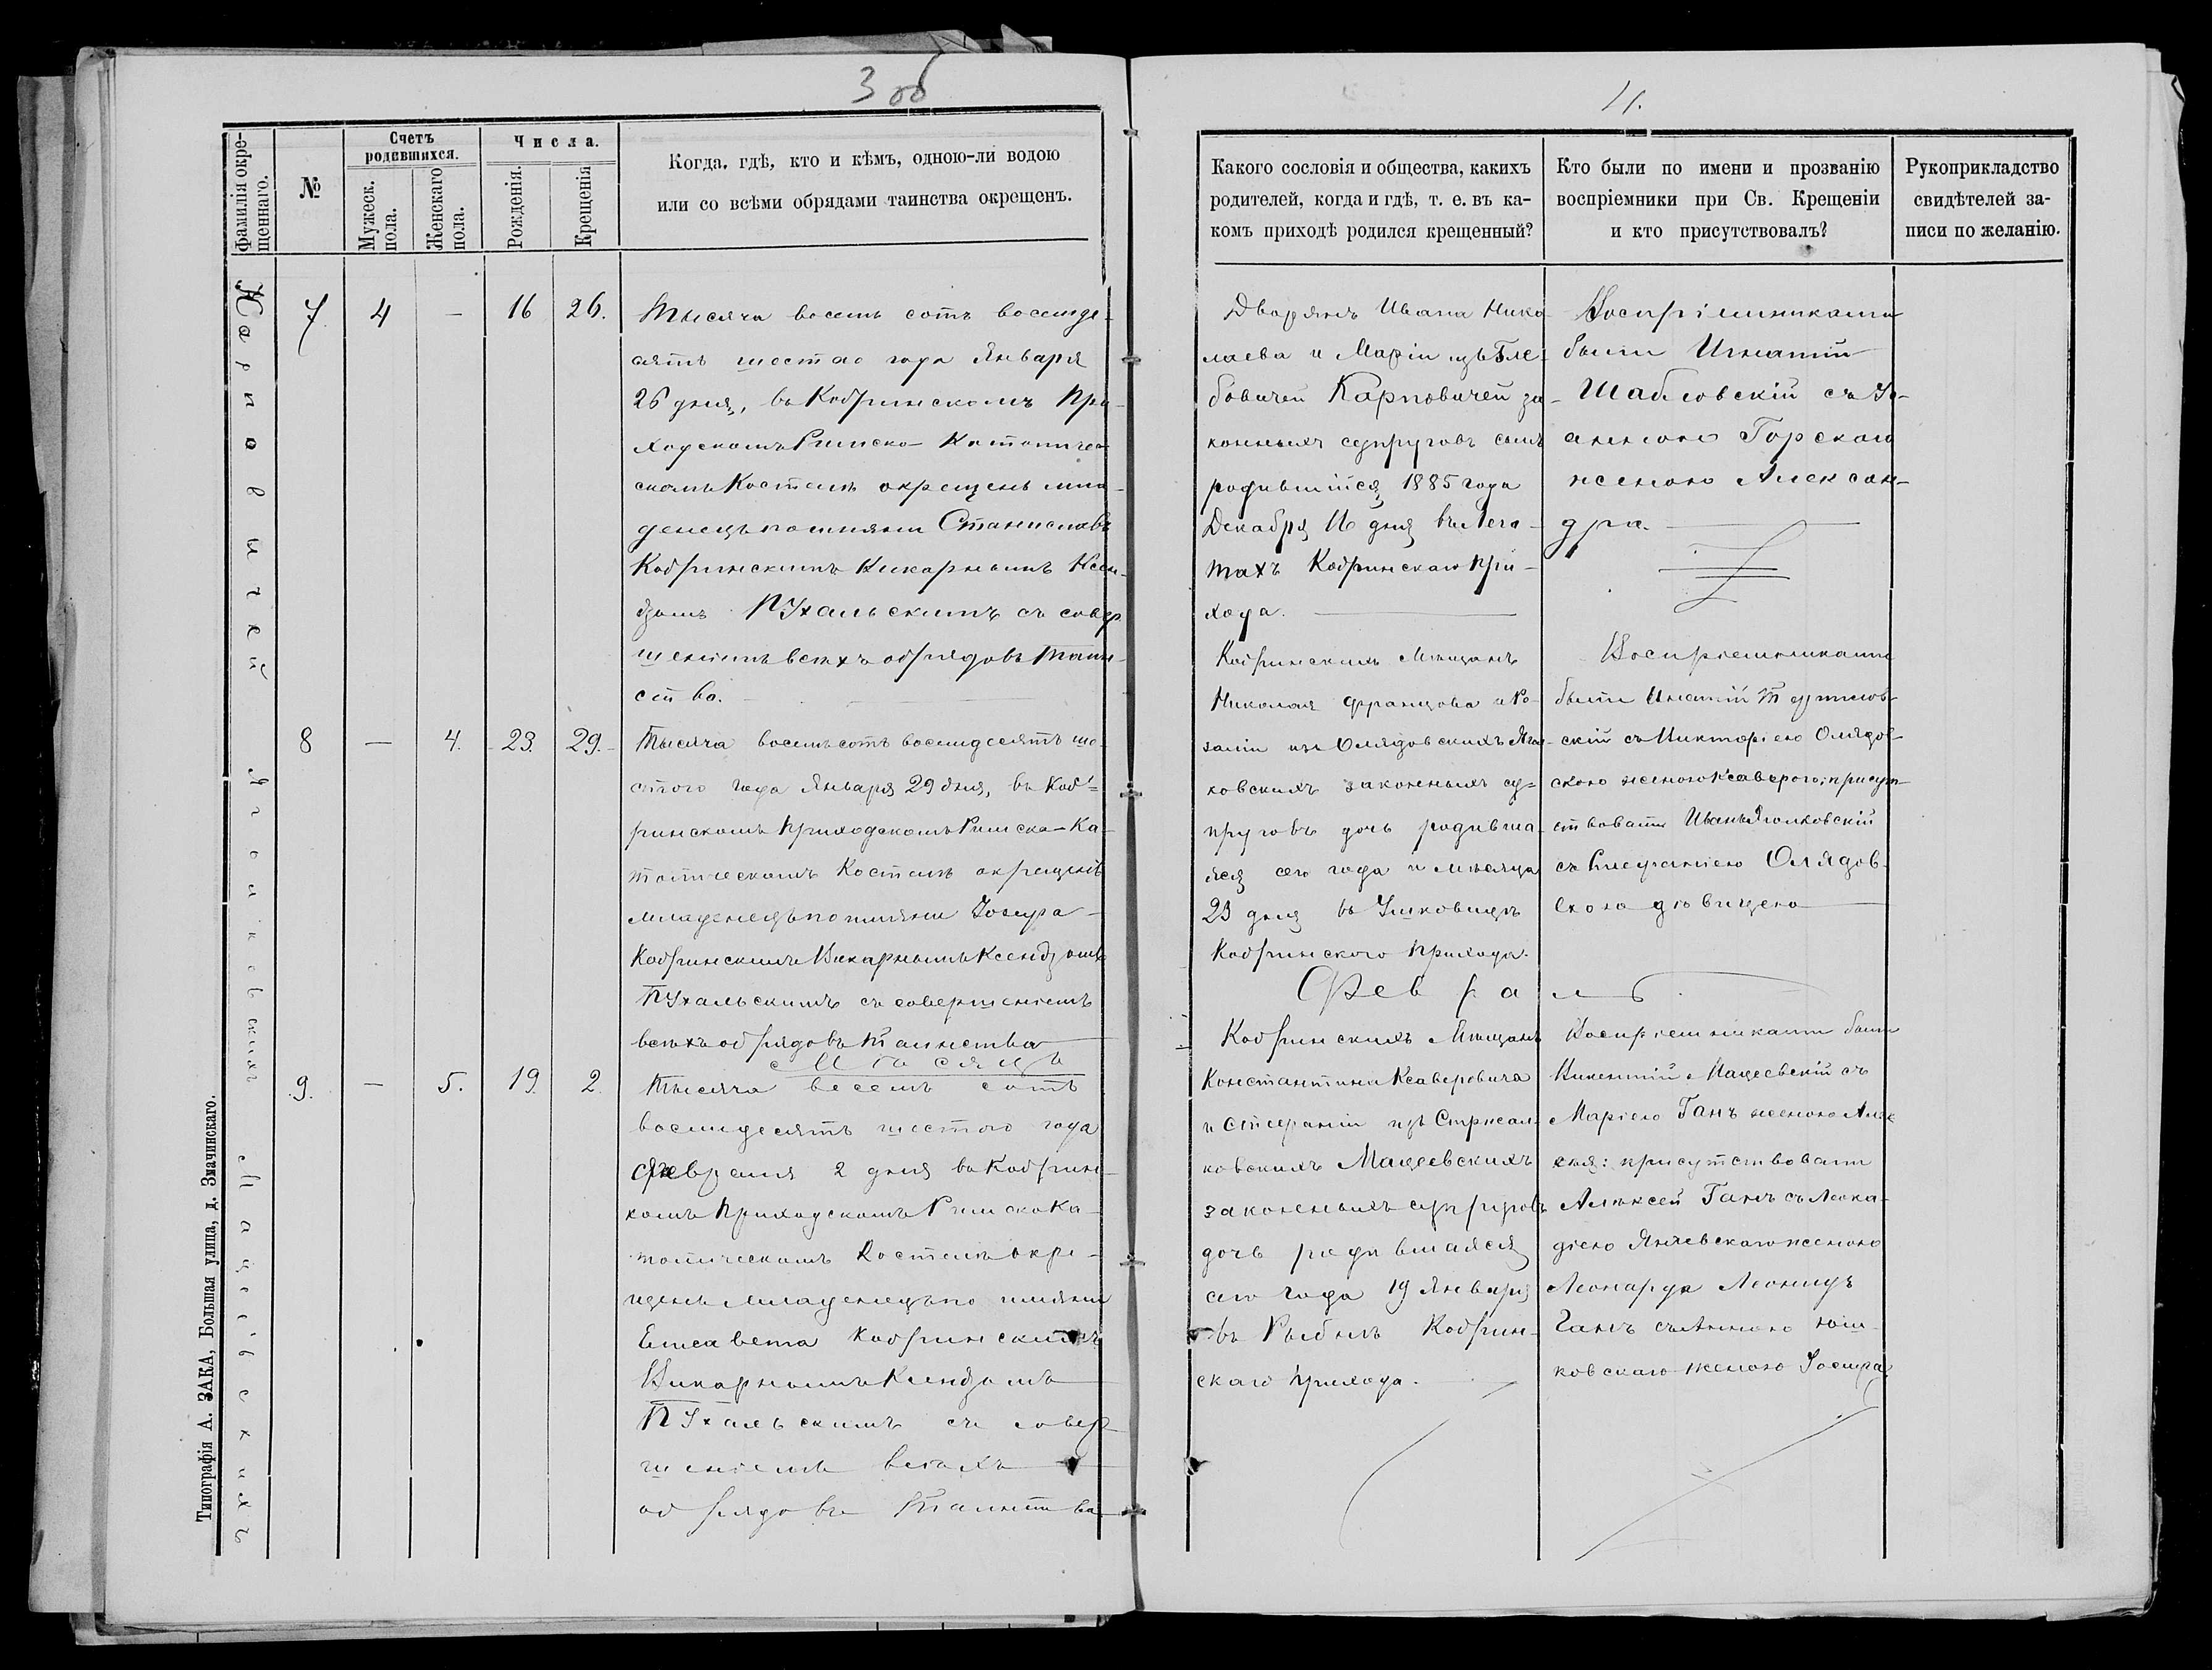 3 об
11.
фамилія окре-
щеннаго.
№
Счетъ
родившихся.
Мужеск.
пола.
Женскаго
пола.
Числа.
Рожденія.
Крещенія
Когда, гдѣ, кто и кѣмъ, одною-ли водою
или со всѣми обрядами таинства окрещенъ.
Какого сословія и общества, какихъ
родителей, когда и гдѣ, т. е. въ ка-
комъ приходѣ родился крещенный?
Кто были по имени и прозванію
воспріемники при Св. Крещеніи
и кто присутствовалъ?
Рукоприкладство
свидѣтелей за-
писи по желанію.
Карповичей
7. 4 — 16 26.
Тысяча восемь сотъ восемде-
сятъ шестао года Января
26 дня, въ Кобринскомъ При-
ходскомъ Римско-Католиче-
скомъ Костелѣ окрещенъ мла-
денецъ по имяни Станиславъ
Кобринскимъ Викарнымъ Ксен-
дзомъ Пухальскимъ съ совер
шеніемъ всѣхъ обрядовъ Таин-
ства.
Дворянъ Ивана Нико-
лаева и Маріи изъ Гле-
бовичей Карповичей за-
конныхъ супруговъ сынъ
родившійся 1885 года
Декабря 16 дня въ Лега-
тахъ Кобринскаго при-
хода.
Воспріемниками
были Игнатій
Шабловскій съ Іо-
анною Горскаго
женою Алексан-
дра.
Яголковскихъ
8 — 4. 23. 29.
Тысяча восемьсотъ восемдесятъ ше-
стого года Января 29 дня, въ Коб-
ринскомъ Приходскомъ Римско-Ка-
толическомъ Костелѣ окрещенъ
младенецъ по имяни Іозефа
Кобринскимъ Викарнымъ Ксендзомъ
Пухальскимъ съ совершеніемъ
всѣхъ обрядовъ Таинства
Кобринскихъ Мѣщанъ
Николая Францова и Ро-
заліи изъ Олядовскихъ Ягол-
ковскихъ законныхъ су-
пруговъ дочь родивша-
яся сего года и мѣсяца
23 дня въ
Кобринского прихода.
Воспріемниками
были Игнатій
скій съ Викторіею Олядов-
скою женою Ксаверого; присут-
ствовали Иванъ Яголковскій
съ Стефаніею Олядов-
скою дѣвицею
Мѣсяцъ Февраль.
Мацеевскихъ
9. — 5. 19. 2.
Тысяча весемь сотъ
восемдесятъ шестого года
Февраля 2 дня въ Кобрин-
комъ Приходскомъ Римско Ка-
толическомъ Костелѣ окре-
щенъ младенецъ по имяни
Елисавета Кобринскимъ
Викарнымъ Ксендзомъ
Пухальскимъ съ совер-
шеніемъ всѣхъ
обрядовъ Таинства
Кобринскихъ Мѣщанъ
Константина Ксаверовича
и Стефаніи изъ Стржал-
ковскихъ Мацеевскихъ
законныхъ супруговъ
дочь родившаяся
сего года 19 Января
въ Рыбнѣ Кобрин-
скаго прихода.
Воспріемниками были
Викентій Мацеевскій съ
Маріею Ганъ женою Але
ксѣя: присутствовали
Алексей Ганъ съ Леока-
діею Янчевскаго женою
Леонарда
Ганъ съ Анною Юш-
ковскаго женою Іосифа
Типографія А. ЗАКА, Большая улица, д. Значинскаго.